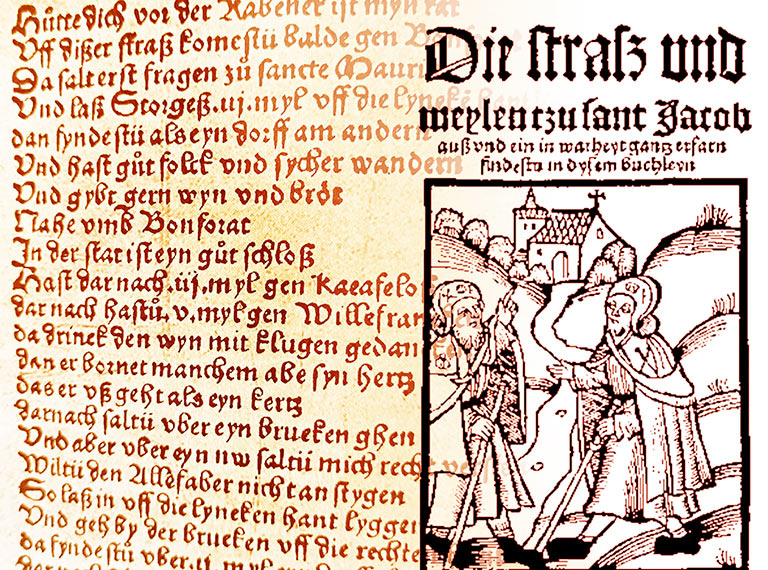 Hütte dich vor der Rabener ist myn rat
Uff dißer straß komestü balde gen
Da salt erst fragen zů sancte Mauri
Vnd laß Storgeß .ij. myl vff die lyneke
dan fyndestü als eyn dorff am andern
Vnd hast gůt folck vnd sycher wandern
Vnd gybt gern wyn vnd brôt
Nahe vmb Bonforat
In der stat ist eyn gůt schloß
Hast dar nach .iij. myl gen Kaeafelo
dar nach hastů .v. myl gen Willefran
da drinck den wyn mit klugen gedan
dan er bornet manchem abe syn hertz
das er vß geht als eyn kertz
darnach saltü vber eyn brucken ghen
Vnd aber vber eyn nw saltü mich recht
Wiltü den Allefaber nicht an stygen
So laß in vff die lyneken hant lygge
Vnd geh by der brucken vff die rechte
da fyndestü vber .ij. myl eyn
Die straß vnd
meylen tzu sant Jacob
auß vnd ein in warheyt gantz erfarn
findestu in dysem buchleyn